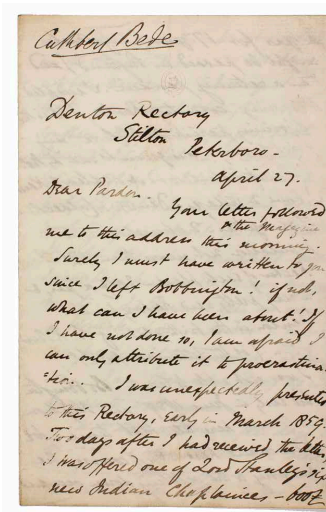 Cuthbert Bede
Denton Rectory
Stilton
Peterboro -
April 27.
Dear Pardon.
Your letter followed
& the Magazine
me to this address this morning.
Surely I must have written to you
since I left Bobbington! if not,
what can I have been about! If
I have not done so, I am afraid I
can only attribute it to procrastina
=tion. I was unexpectedly presented
to this Rectory, early in March 1859.
Two days after I had received the letter,
I was offered one of Lord Stanley's six
new Indian Chaplaincies - 600£